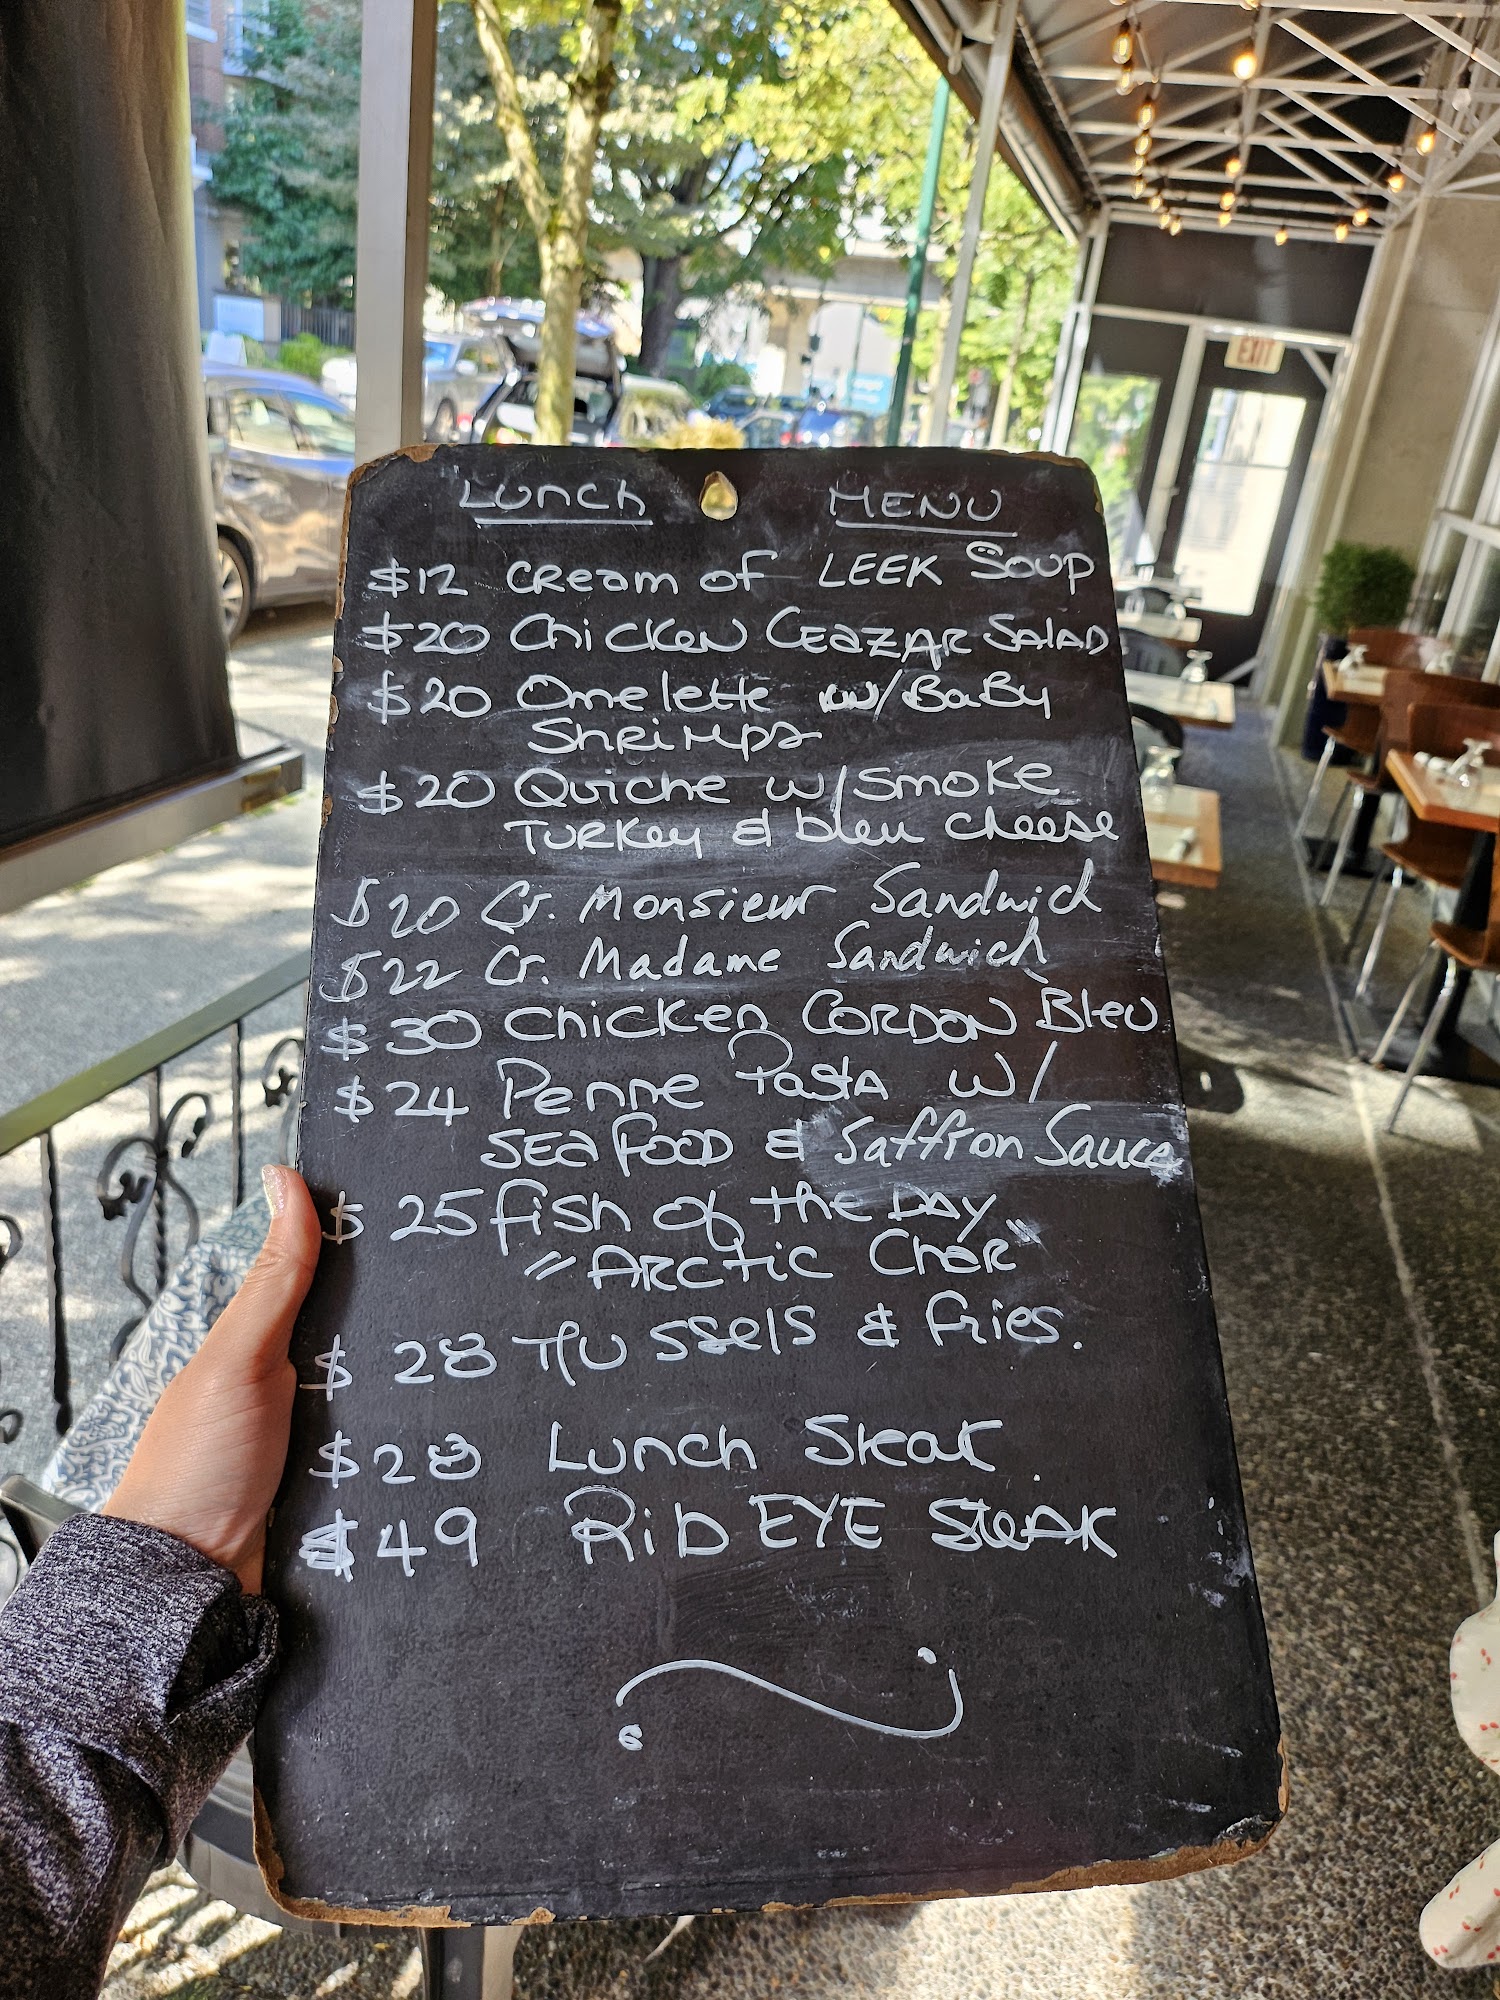 EXIT
Lunch MENU
$12 Cream of LEEK Soup
$20 Chicken CEAZAR SALAD
$20 Omelette w/BaBy
Shrimps
$20 Quiche w/Smoke
TURKey & bleu cheese
$20 Cr. Monsieur Sandwich
$22 Cr. Madame Sandwich
$30 Chicken CORDON Bleu
$24 Penne Pasta w/
SEafood & Saffron Sauce
$25 fish of the DAY
"ARctic Char"
$28 Mussels & fries.
$28 Lunch Steak.
$49 Rib EYE SteAK